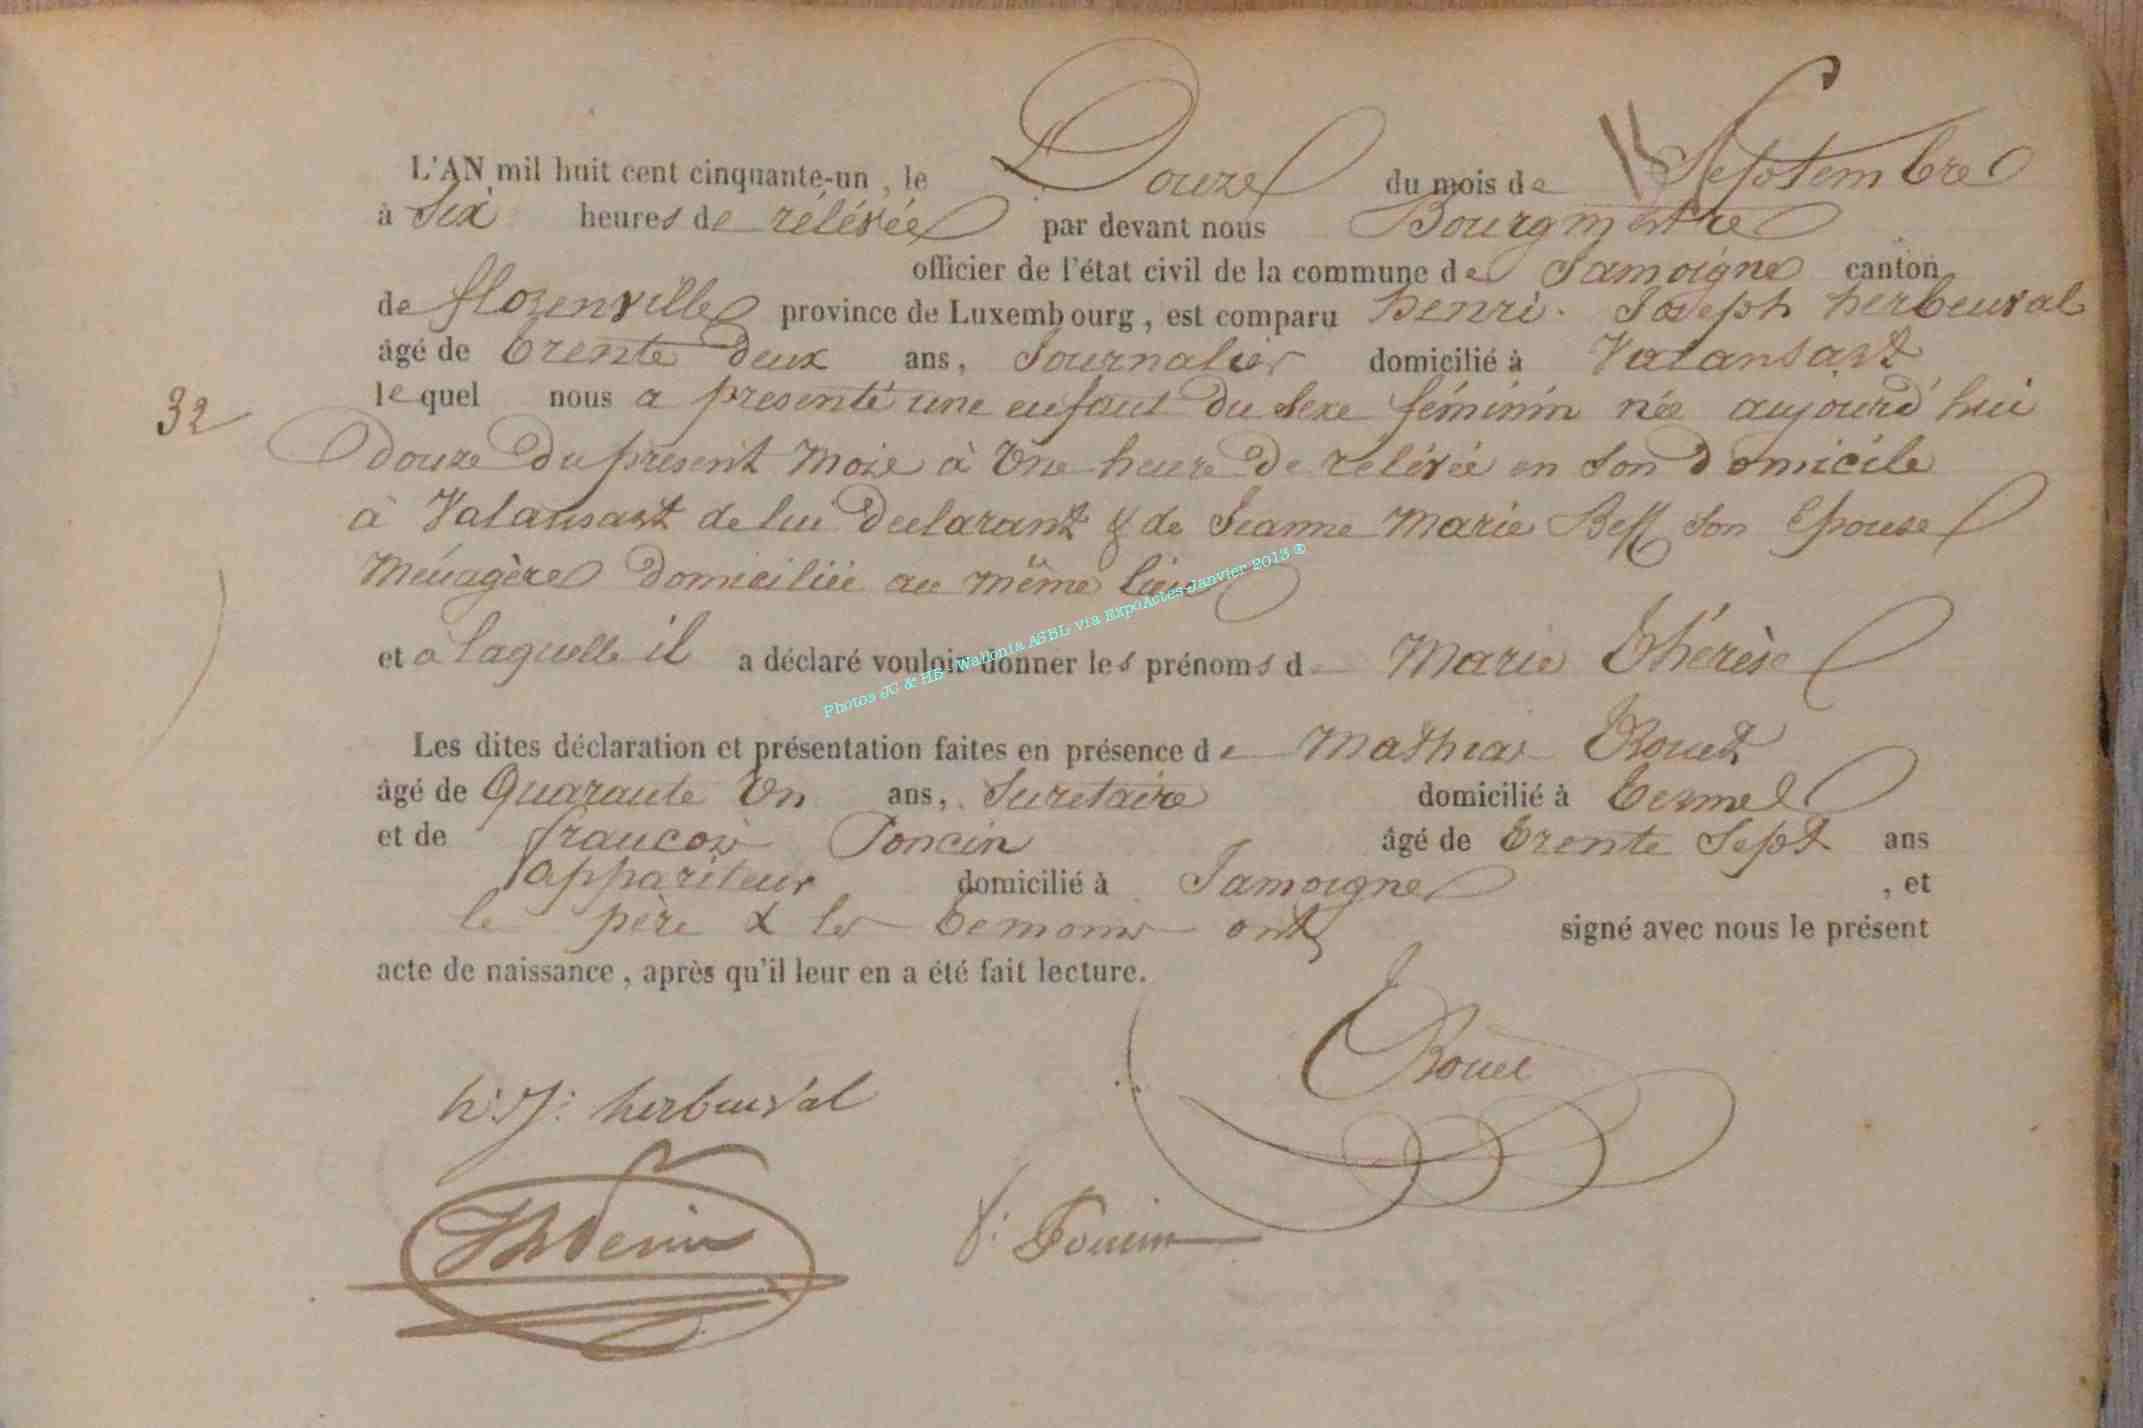 L'AN mil huit cent cinquante-un, le Douze du mois de Septembre
à Six heures de rélévée par devant nous Bourgmestre
officier de l'état civil de la commune de Jamoigne canton
de florenville province de Luxembourg, est comparu henri Joseph herbeuval
âgé de trente deux ans, Journalier domicilié à Valansart
lequel nous a presenté une enfant du sexe féminin née aujourd'hui
32
douze du présent mois à Une heure de relévée en son domicile
à Valansart de lui declarant & de Jeanne Marie son Epouse
Ménagère domiciliée au même lieu
et a laquelle il a déclaré vouloir donner les prénoms d Marie Thérèse
Photos JC & HB - Wallonia ASBL via ExpoActes Janvier 2013 ®
Les dites déclaration et présentation faites en présence de Mathias Rouet
âgé de Quarante Un ans, domicilié à termel
et de francois Poncin âgé de trente Sept ans
appariteur domicilié à Jamoigne, et
le père & les temoins ont signé avec nous le présent
acte de naissance, après qu'il leur en a été fait lecture.
Rouet
h: J: herbeuval
f: Poncin